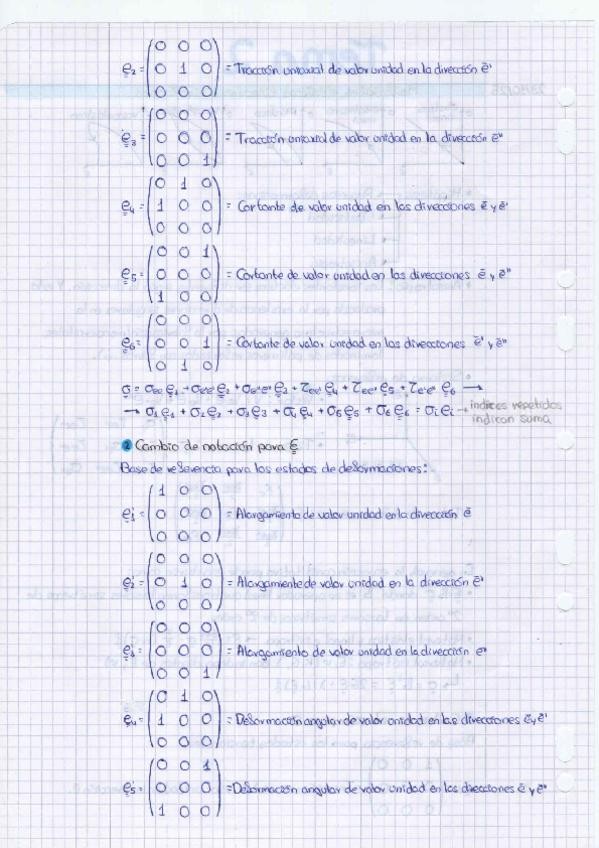 0 0 0
e2 = 0 1 0 = Tracción uniaxial de valor unidad en la dirección ē'
0 0 0
0 0 0
e3 = 0 0 0 = Tracción uniaxial de valor unidad en la dirección ē"
0 0 1
0 1 0
e4 = 1 0 0 = Cortante de valor unidad en las direcciones ē y ē'
0 0 0
0 0 1
e5 = 0 0 0 = Cortante de valor unidad en las direcciones ē y ē"
1 0 0
0 0 0
e6 = 0 0 1 = Cortante de valor unidad en las direcciones ē' y ē"
0 1 0
σ = σee e1 + σe'e' e2 + σe"e" e3 + τee' e4 + τee" e5 + τe'e" e6 →
→ σ1 e1 + σ2 e2 + σ3 e3 + σ4 e4 + σ5 e5 + σ6 e6 = σi ei → indices repetidos
indican suma
2 Cambio de notación para ε
Base de referencia para los estados de deformaciones:
1 0 0
e'1 = 0 0 0 = Alargamiento de valor unidad en la dirección ē
0 0 0
0 0 0
e'2 = 0 1 0 = Alargamiento de valor unidad en la dirección ē'
0 0 0
0 0 0
e'3 = 0 0 0 = Alargamiento de valor unidad en la dirección ē"
0 0 1
0 1 0
e4 = 1 0 0 = Deformación angular de valor unidad en las direcciones ē y ē'
0 0 0
0 0 1
e'5 = 0 0 0 = Deformación angular de valor unidad en las direcciones ē y ē"
1 0 0